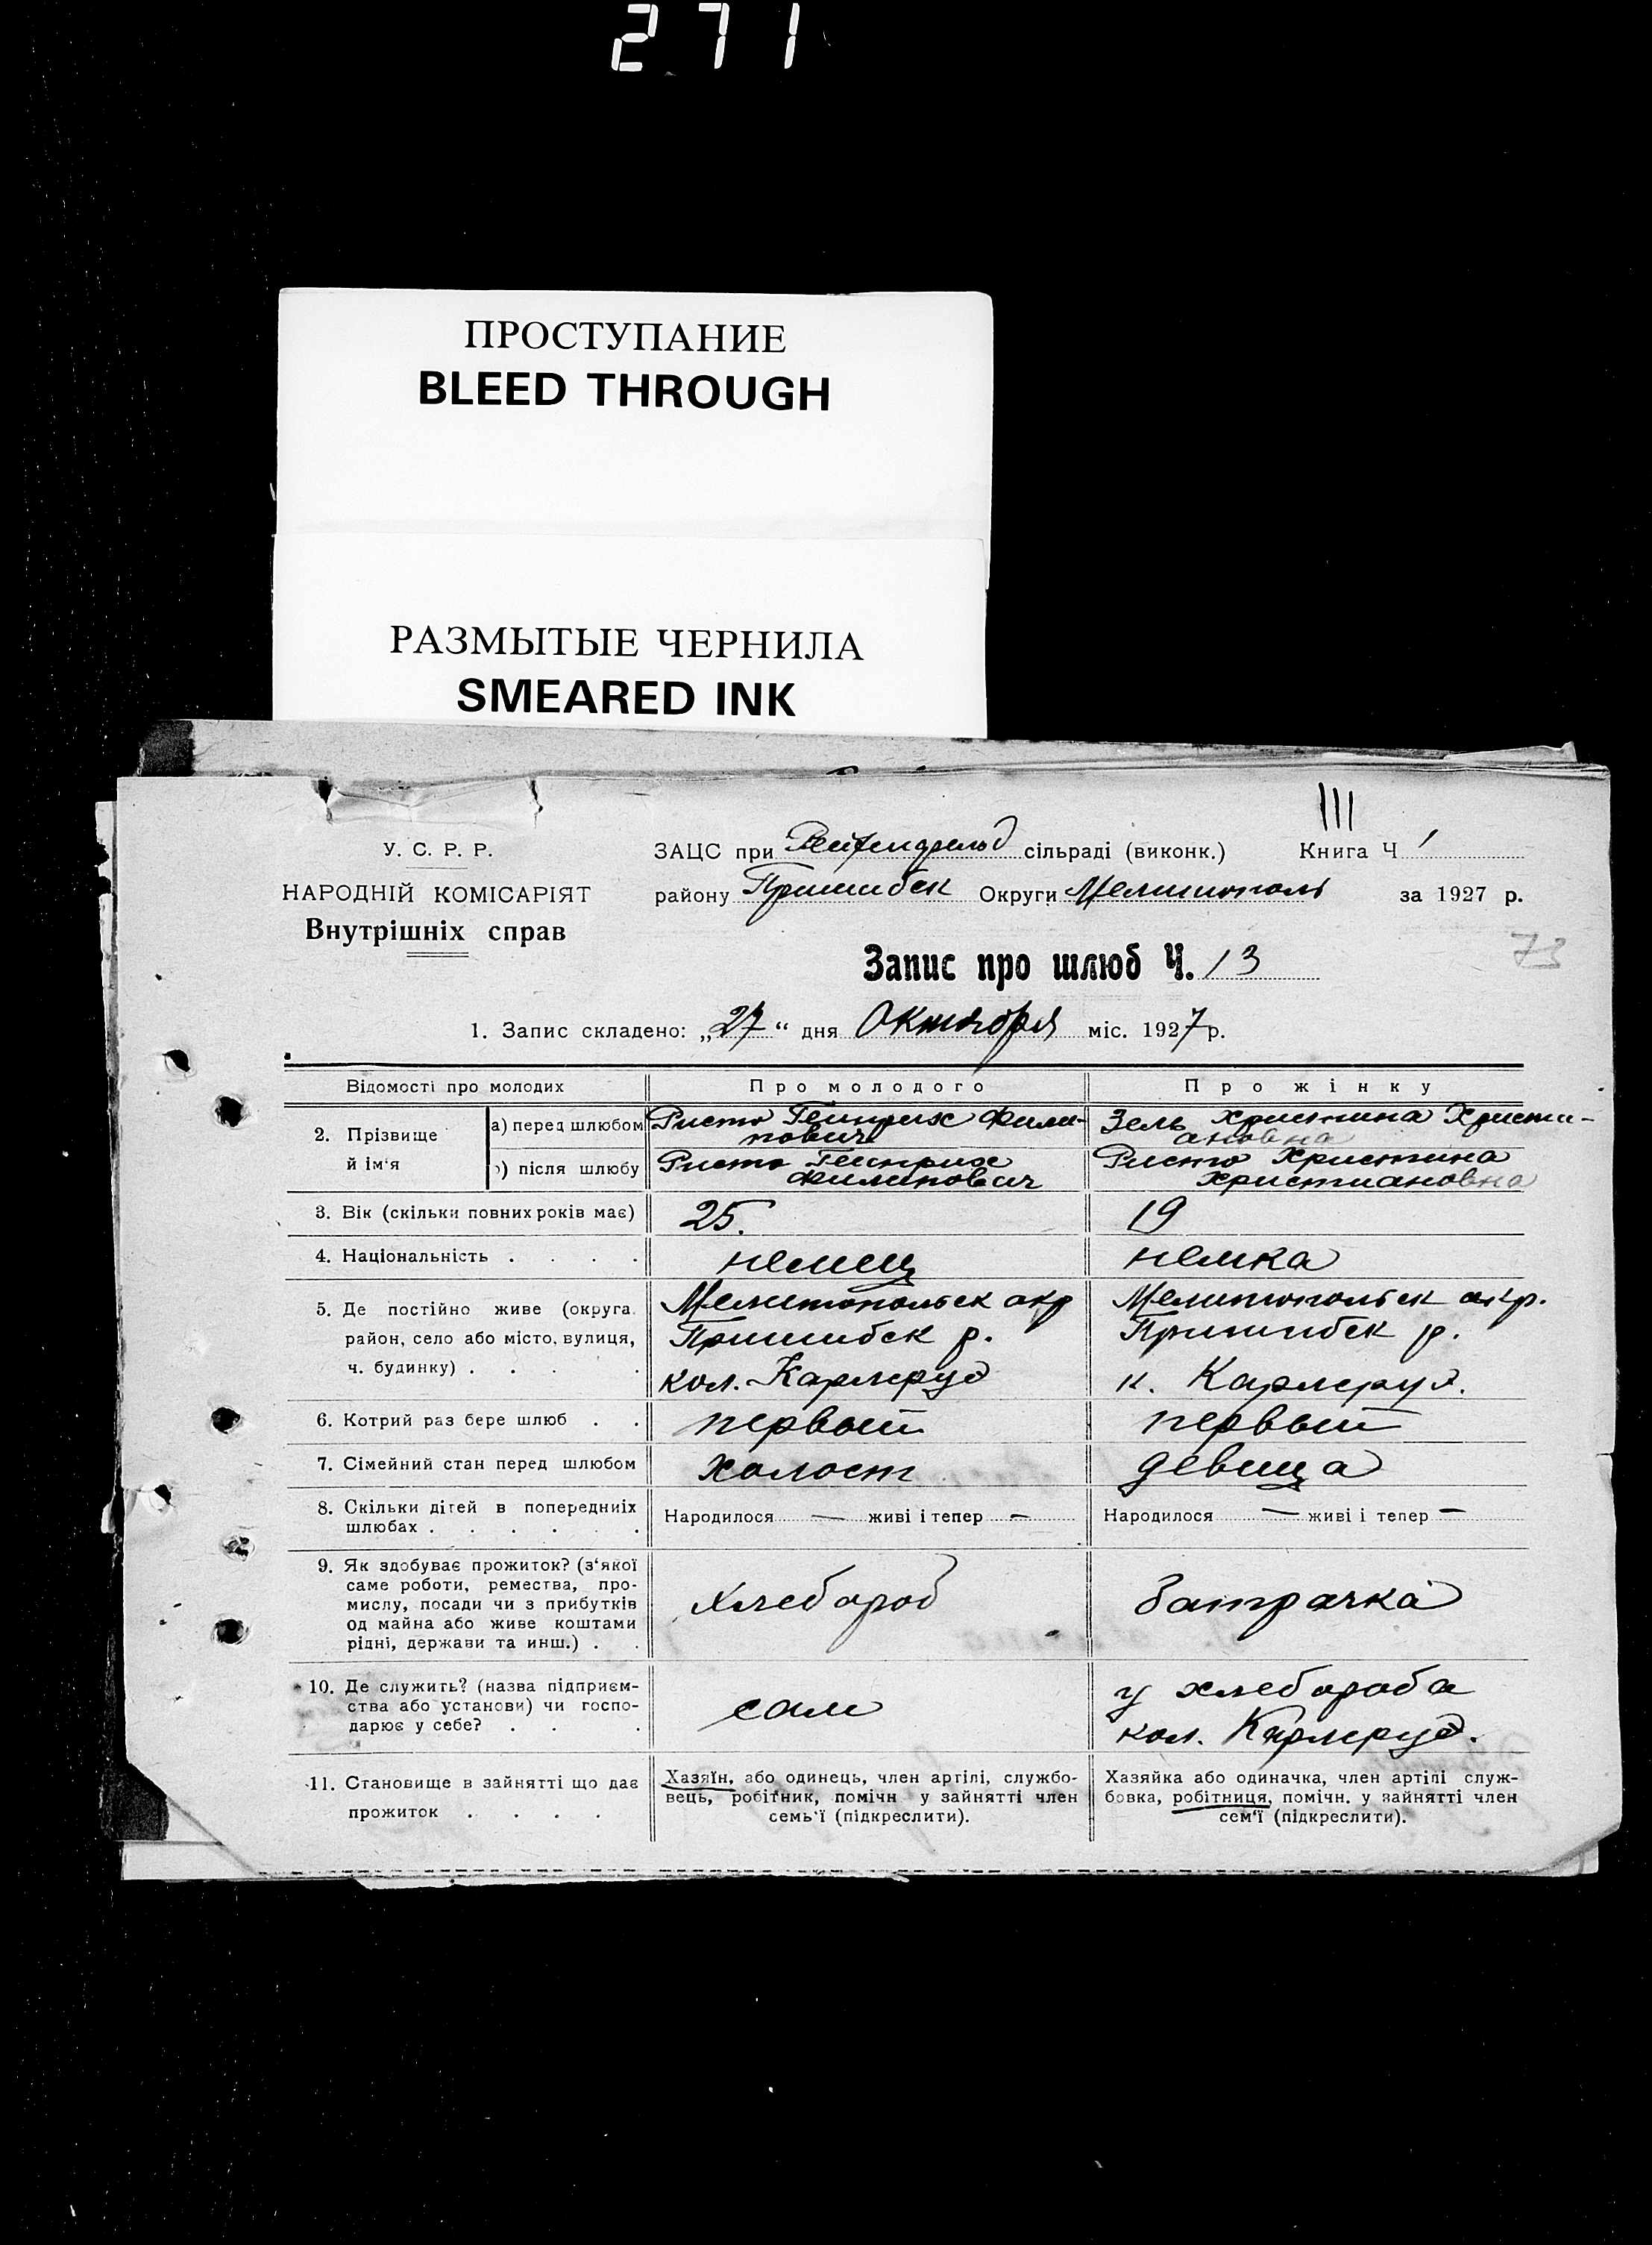 271
ПРОСТУПАНИЕ
BLEED THROUGH
РАЗМЫТЫЕ ЧЕРНИЛА
SMEARED INK
III
У. С. Р. Р.
НАРОДНІЙ КОМІСАРІЯТ
Внутрішніх справ
ЗАЦС при Рейхенфельд сільраді (виконк.) Книга Ч 1
району Пришибск Округи Мелитополь за 1927 р.
73
Запис про шлюб Ч. 13
1. Запис складено: „27“ дня Октября міс. 1927 р.
Відомості про молодих
Про молодого
Про жінку
2. Прізвище й ім'я
а) перед шлюбом
Ристо Генрих Фили-
пович
Зель Христина Христи-
ановна
б) після шлюбу
Ристо Генрих
Филипович
Ристо Христина
Христиановна
3. Вік (скільки повних років має)
25.
19
4. Національність . . . .
немец
немка
5. Де постійно живе (округа
район, село або місто, вулиця,
ч. будинку) . . . .
Мелитопольск окр
Пришибск р.
кол. Карлеруэ
Мелитопольск окр.
Пришибск р.
к. Карлеруэ.
6. Котрий раз бере шлюб . .
первый
первый
7. Сімейний стан перед шлюбом
холост
девица
8. Скільки дітей в попередниіх
шлюбах . . . . . .
Народилося — живі і тепер —
Народилося — живі і тепер —
9. Як здобуває прожиток? (з'якої
саме роботи, ремества, про-
мислу, посади чи з прибутків
од майна або живе коштами
рідні, держави та инш.) . .
хлебороб
батрачка
10. Де служить? (назва підприєм-
ства або установи) чи госпо-
дарює у себе? . . .
сам
у хлебороба
кол. Карлеруэ.
11. Становище в зайнятті що дає
прожиток . . . .
Хазяїн, або одинець, член артілі, службо-
вець, робітник, помічн у зайнятті член
семь'ї (підкреслити).
Хазяйка або одиначка, член артілі служ-
бовка, робітниця, помічн. у зайнятті член
сем'ї (підкреслити).